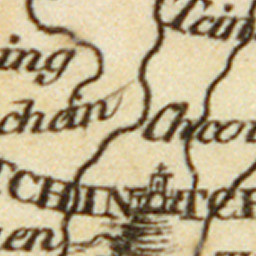 Tcin
ing
chein
Chcou
TCHIN TCH
uen